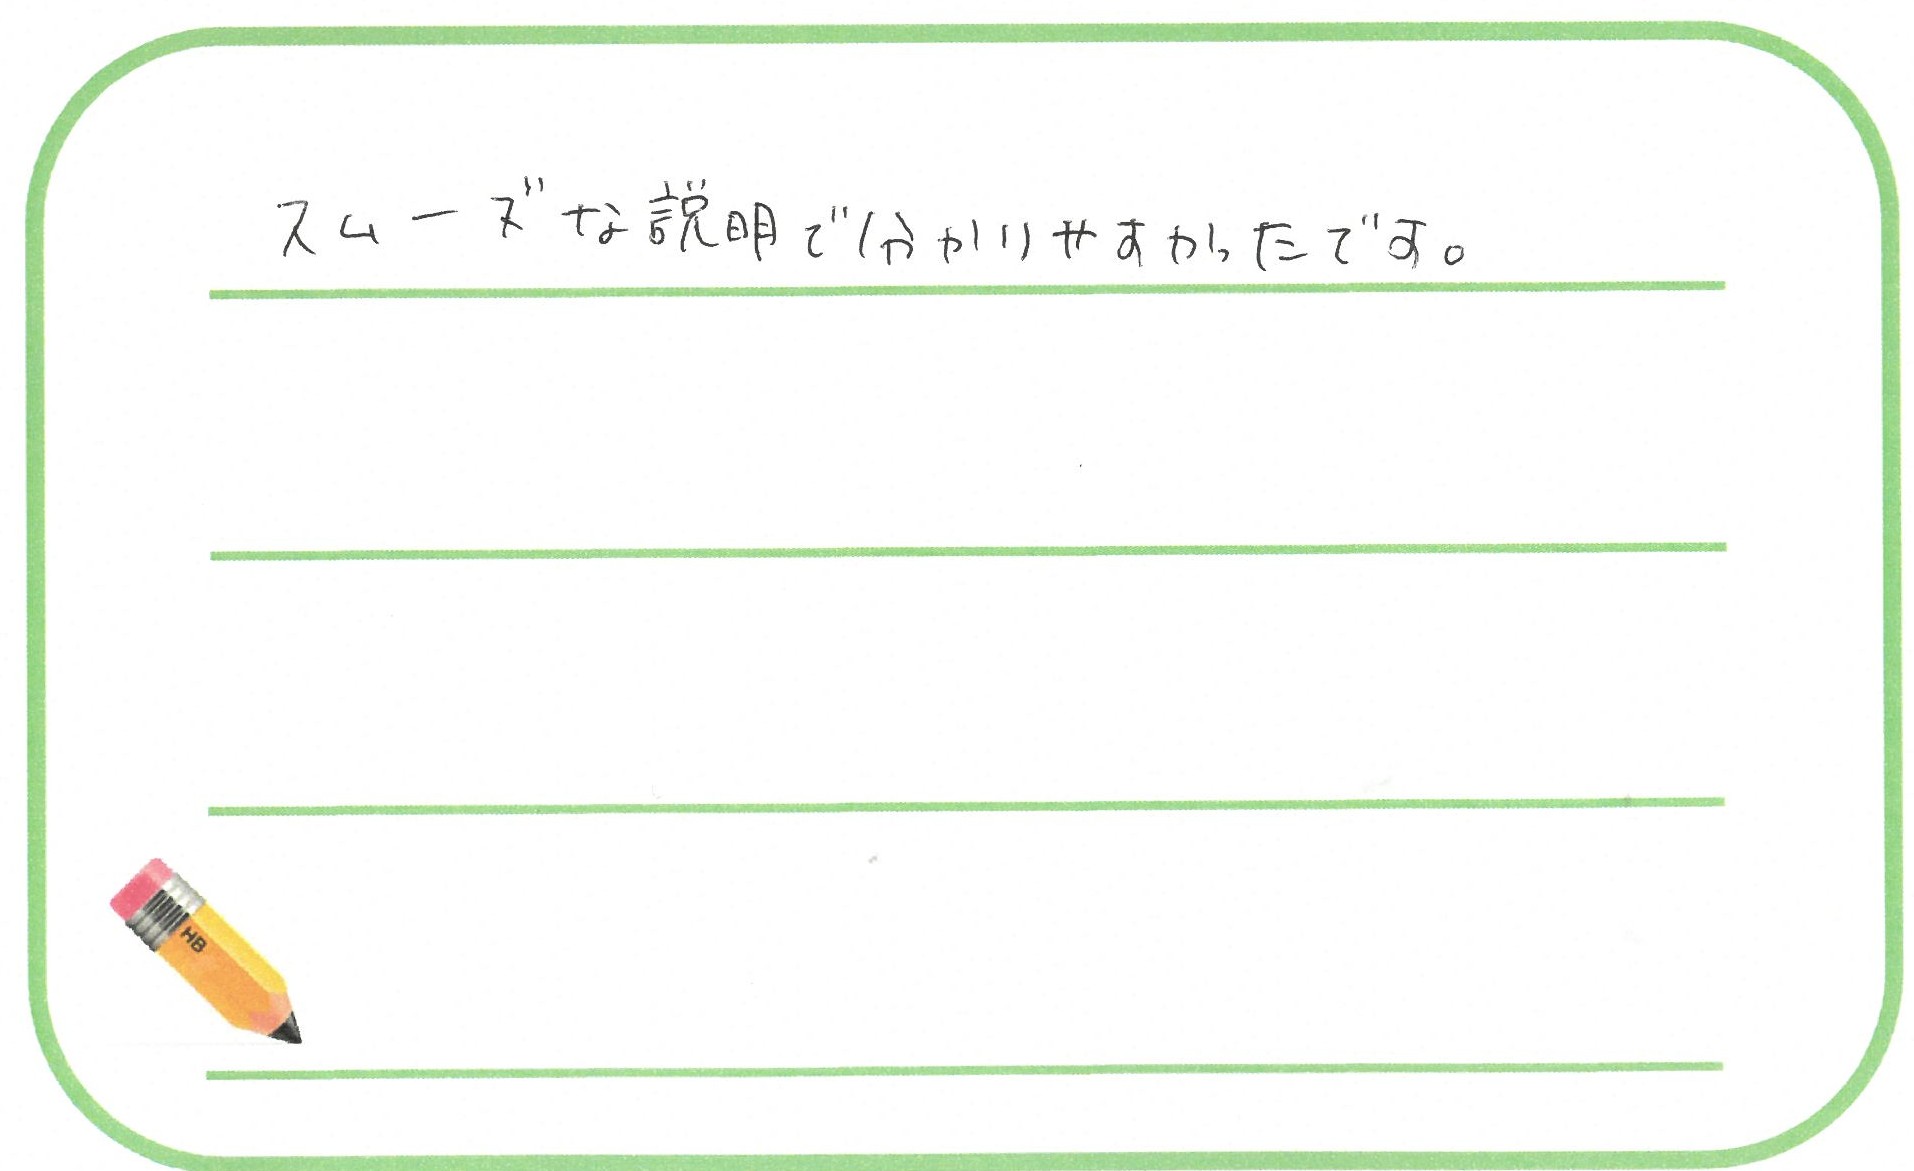 スムーズな説明で分かりやすかったです。
HB